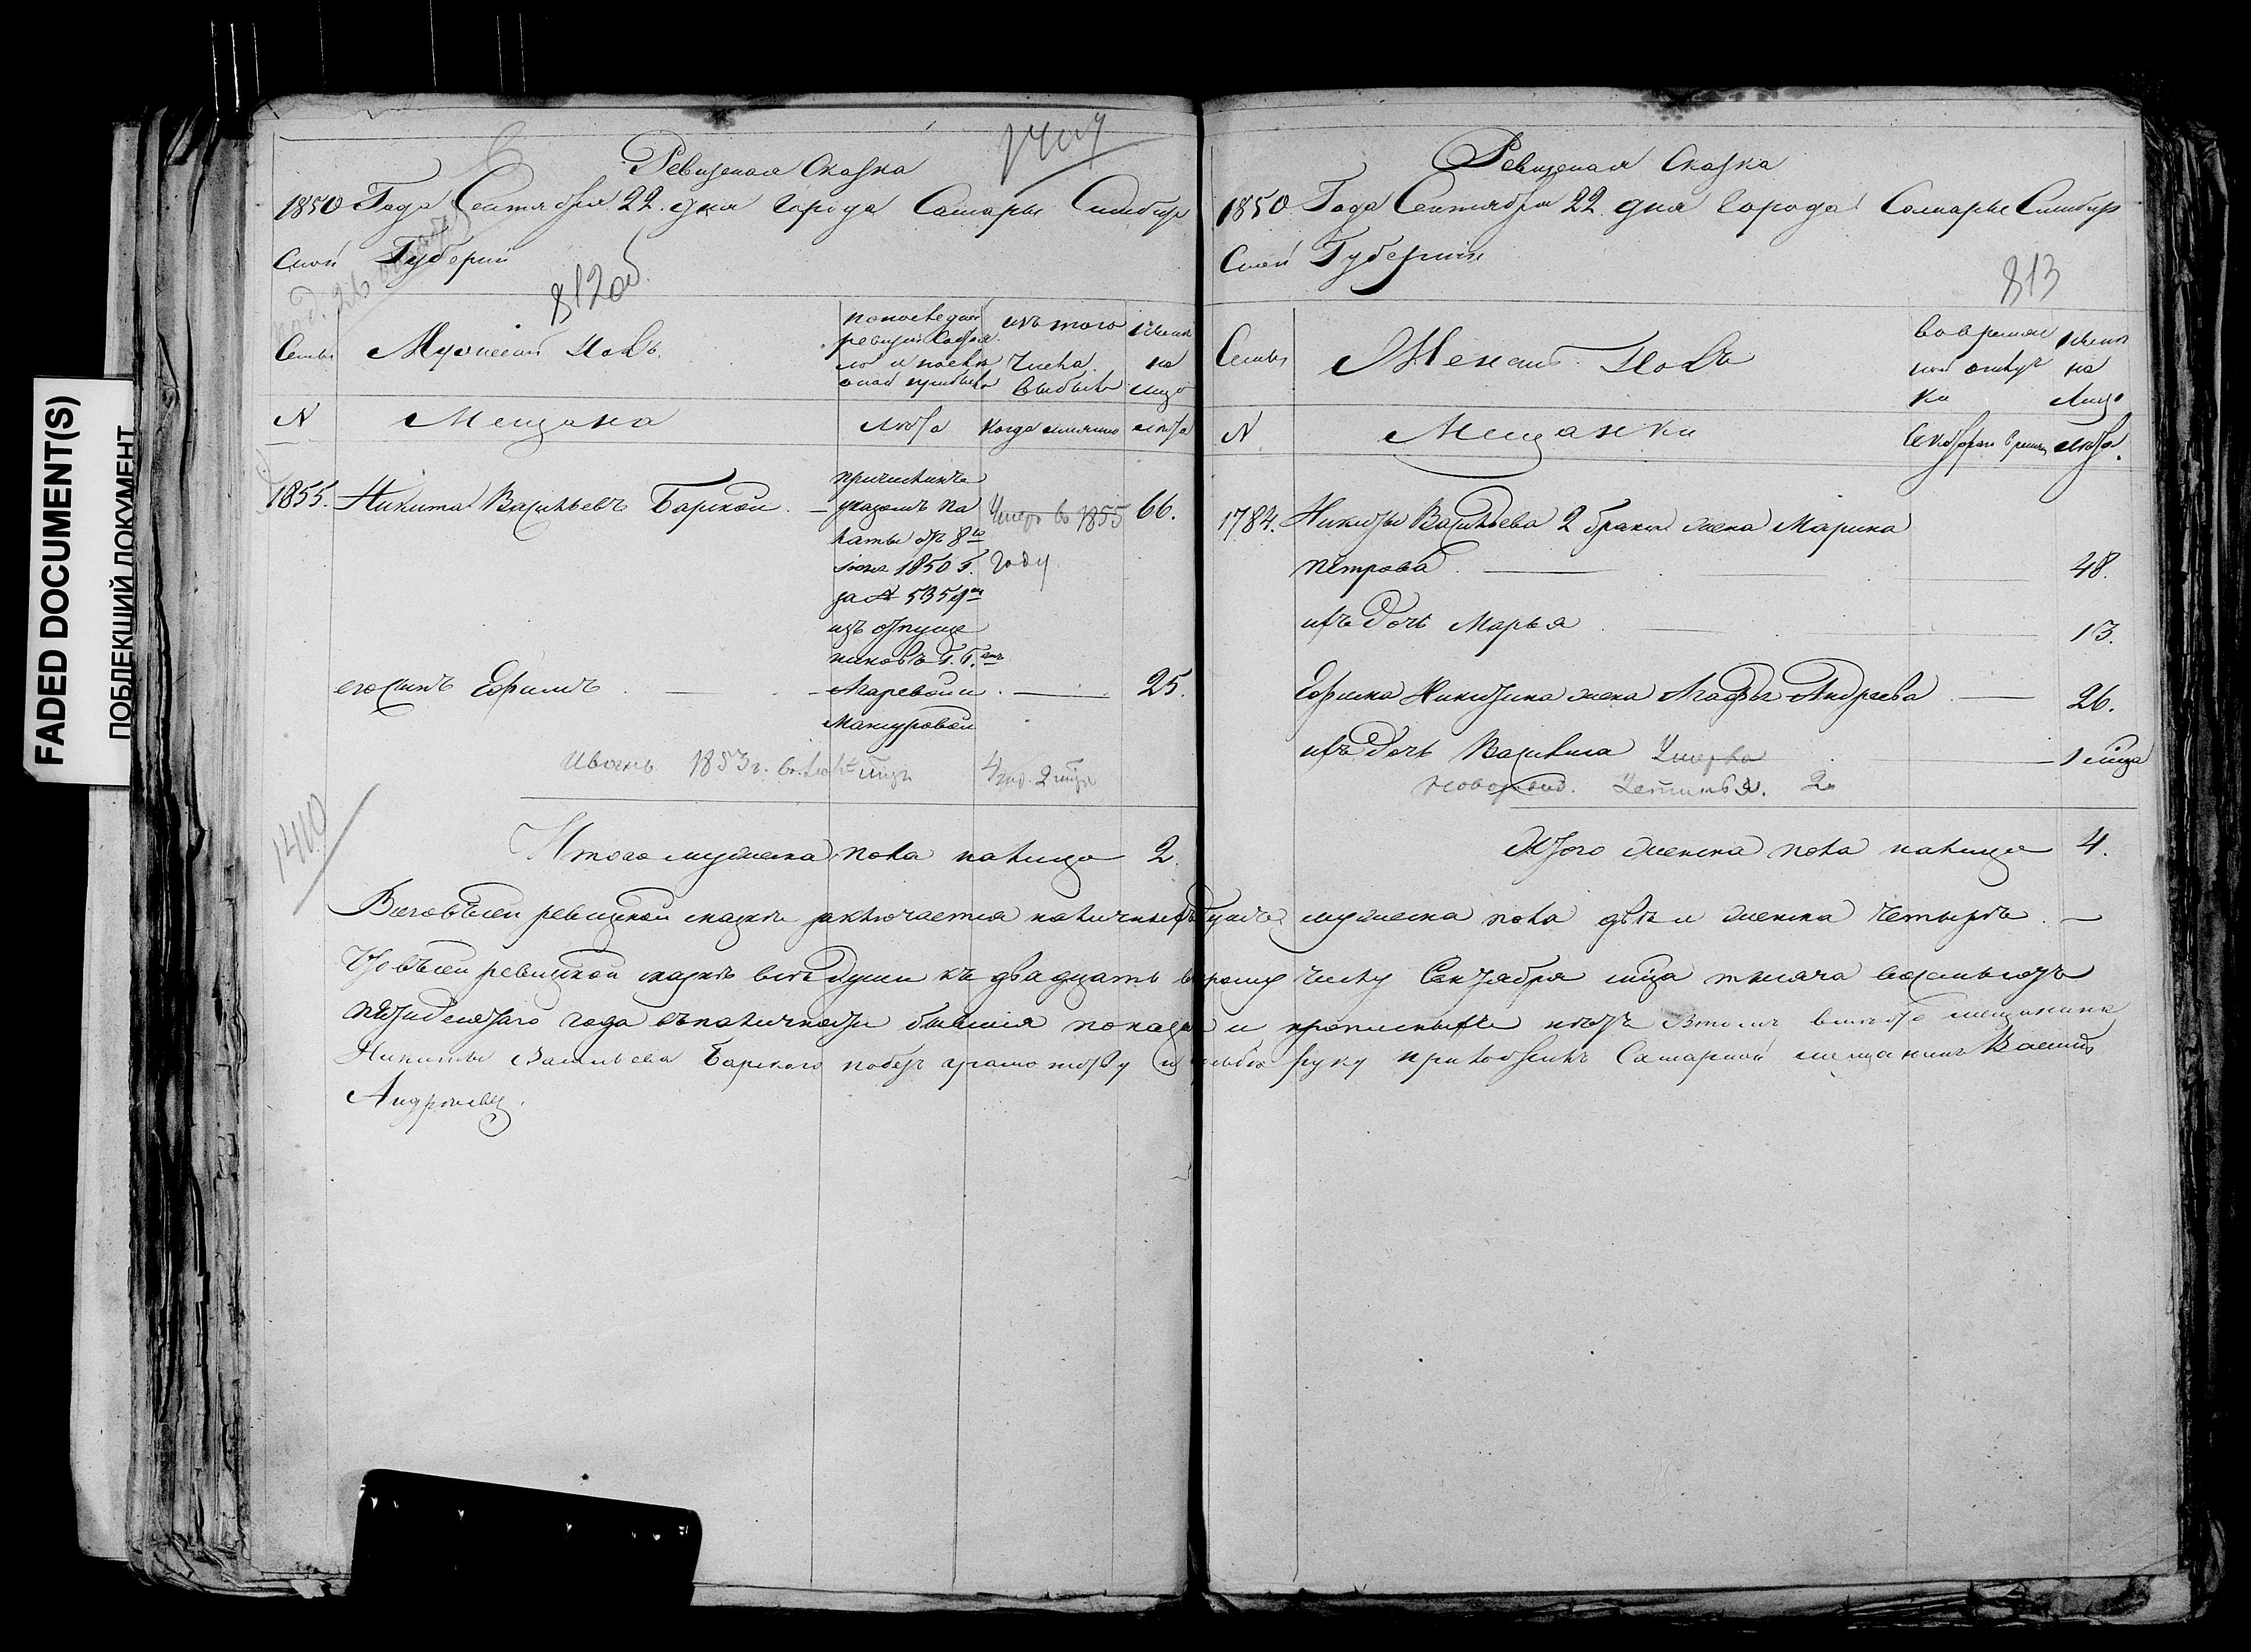 FADED DOCUMENT(S)
ПОБЛЕКШИЙ ДОКУМЕНТ
Ревизская Сказка
1850 Года Сентября 22. дня города Самары Симбир
ской Губернии
812об.
Семьи Мужеской полъ. по последней ревизии состояло и после оной прибыло изъ того числа выбыло ныне на лицо
N Мещана лета когда именно лета
1855. Никита Васильевъ Барской. 66.
причисленъ
указомъ Па
латы отъ 8го
1850 Г.
за №
изъ отпуще
никовъ Г. Г.
Агаревой и
Мансуровой
Умеръ въ 1855
году
его сынъ Ефимъ 25.
Иванъ 1853 г. 4 год. 2 мца
1410
Итого мужеска пола налицо 2.
Ревизская Сказка
1850 Года Сентября 22. дня города Самары Симбир
ской Губернии
813
Семьи Женской полъ во временной отлучке ныне на лицо
N. Мещанки лета.
1784. Никиты Васильева 2 брака жена Марина
Петрова 48.
ихъ дочь Марья 13.
Ефима Никитина жена Агафья Андреева 26.
ихъ дочь Васильиса Умерла 1 мца
новорожд. Устинья. 2
Итого женска пола налицо 4.
Всего въ сей ревизской сказке заключается наличныхъ душъ мужеска пола две и женска четыре
Что въ сей ревизской сказке все души къ двадцать второму числу Сентября мца тысяча восемьсотъ
пятидесятого года въ наличности бывшия показаны и прописныхъ нетъ Втомъ вместо мещанина
Никиты Васильева Барского побезъ грамотству руку приложилъ Самарской мещанинъ Василий